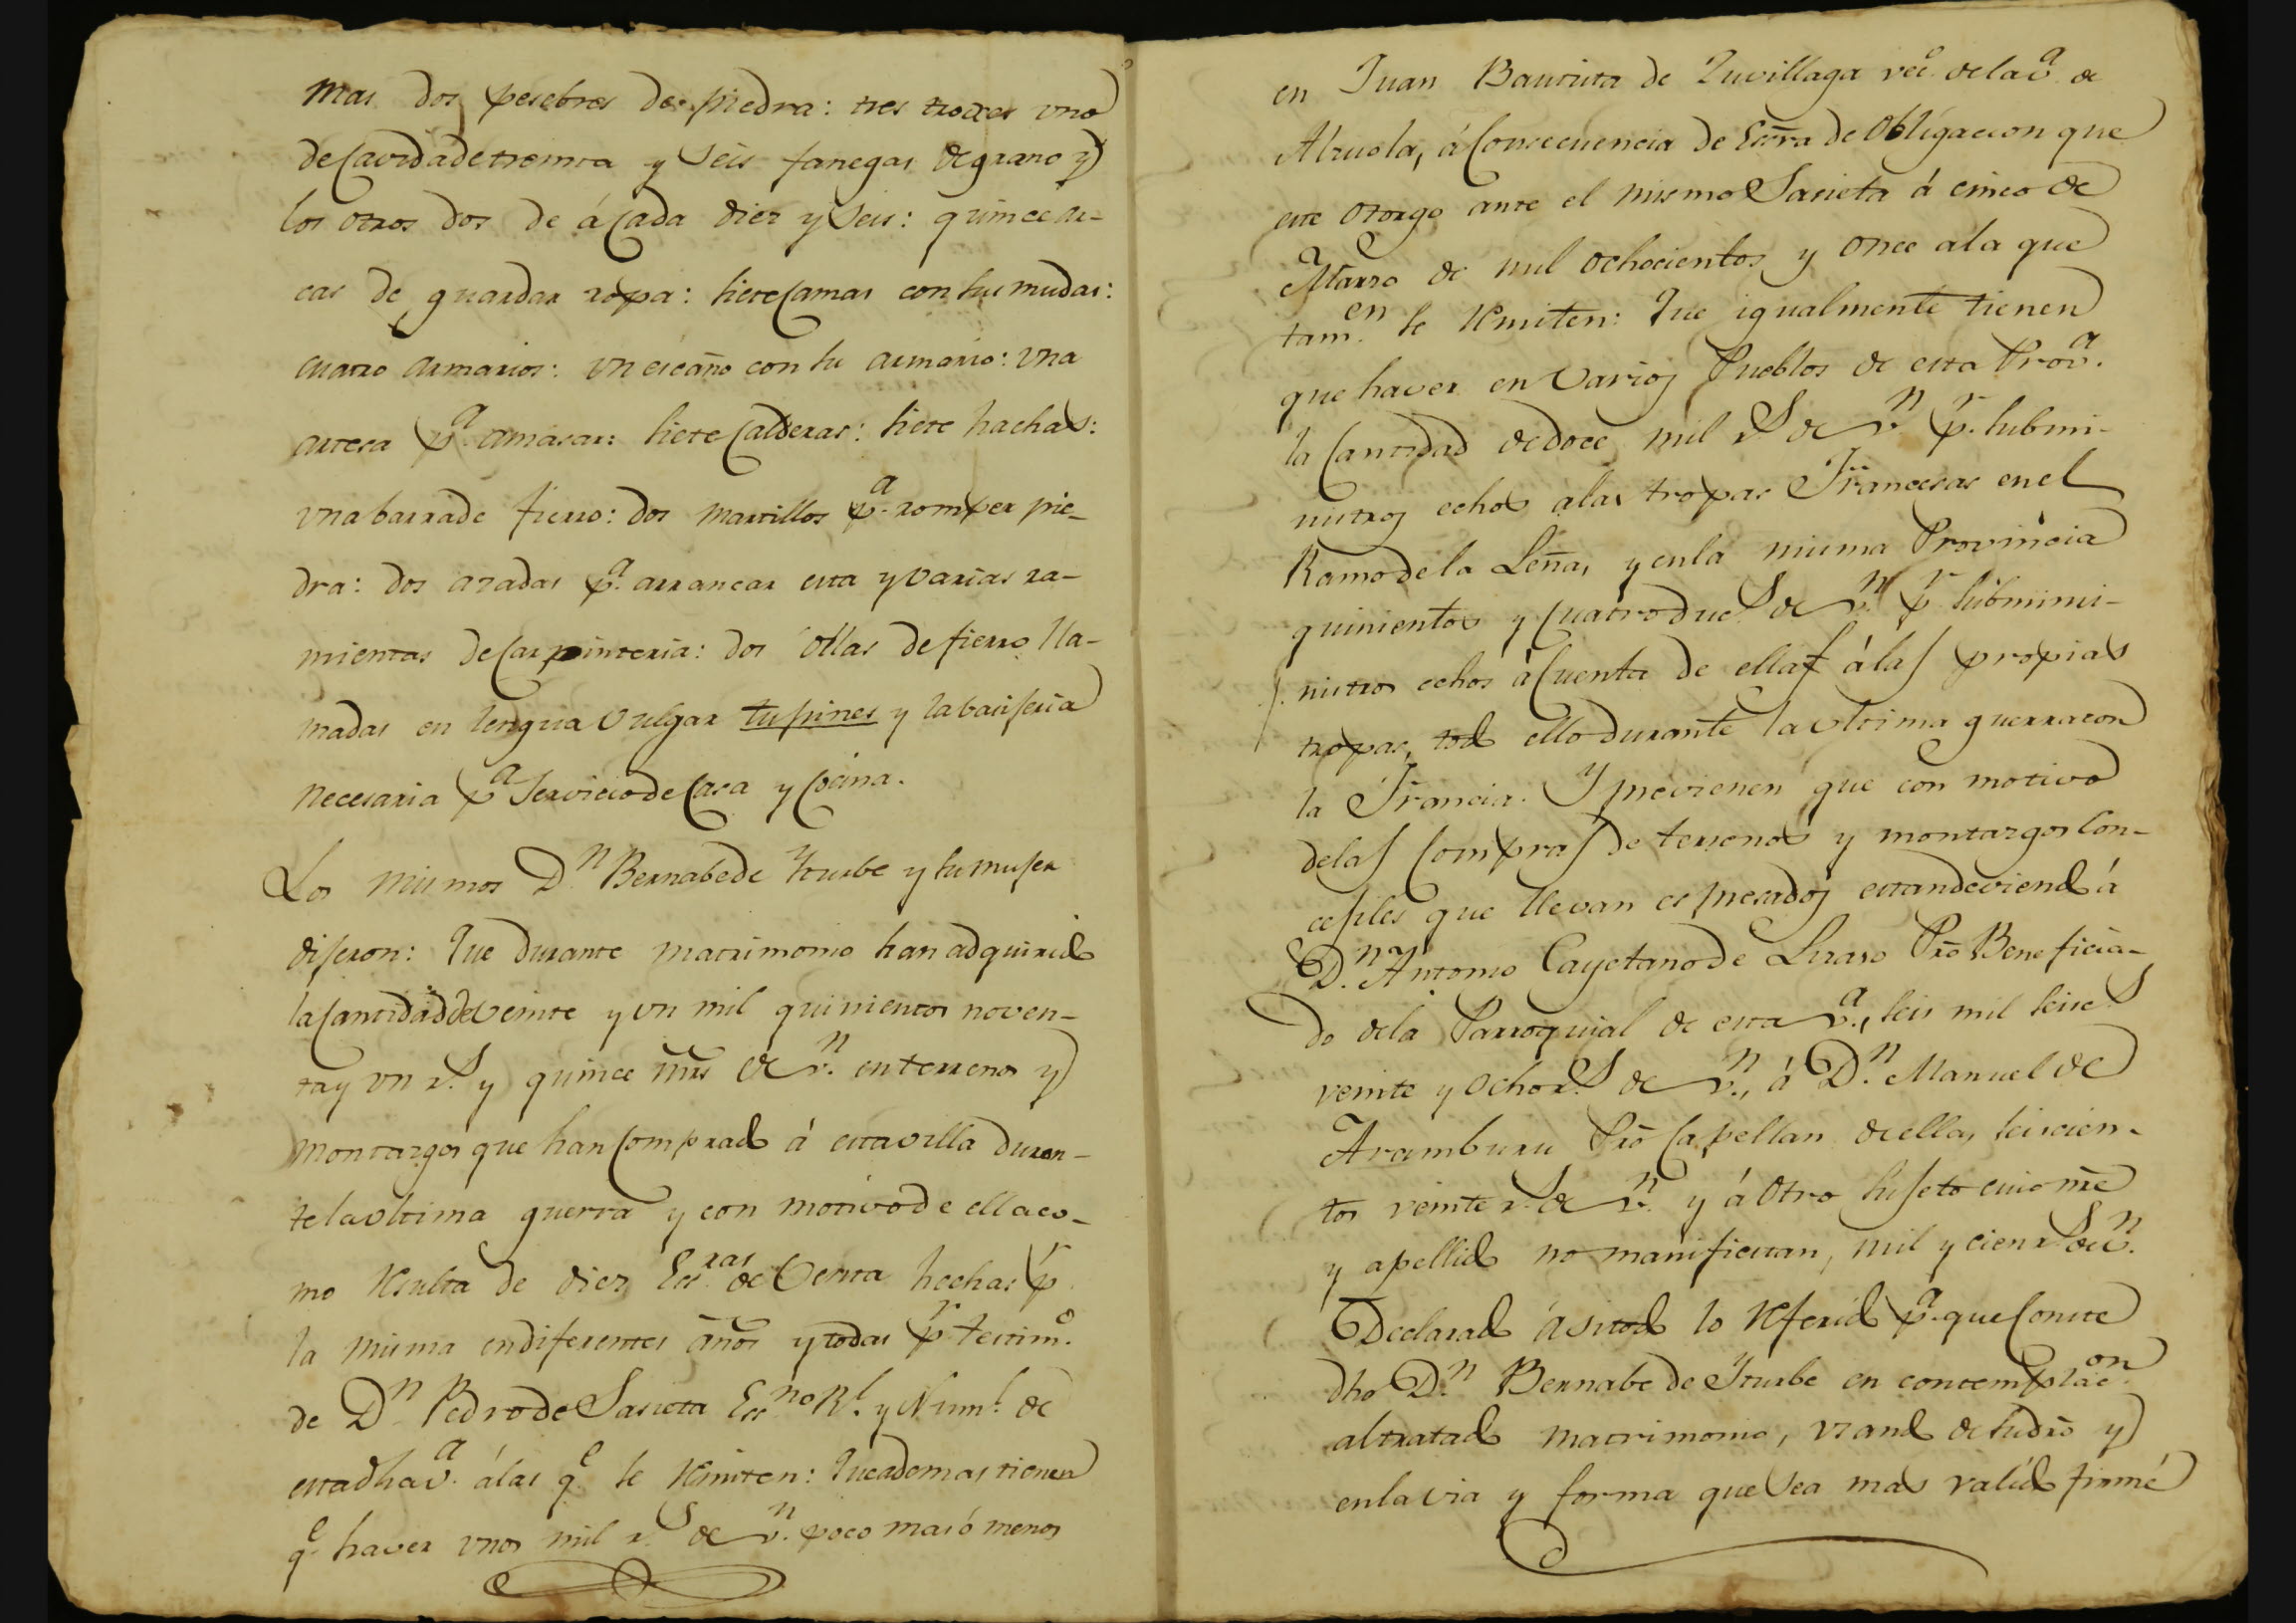 mas dos pesebres de piedra: tres troxes uno
de cavida de treinta y seis fanegas de grano y
los otros dos de á cada diez y seis: quince ar-
cas de guardar ropa: siete camas con sus mudas:
cuatro armarios: un escaño con su armario: una
artesa p.a amasar: siete calderas: siete hachas:
una barra de fierro: dos martillos p.a romper pie-
dra: dos azadas p.a arrancar esta y varias ra-
mientas de carpinteria: dos ollas de fierro lla-
madas en lengua vulgar tupines y la baxiseria
necesaria p.a servicio de casa y cocina.
Los mismos D.n Bernabe de Yturbe y su muger
dijeron: Que durante matrimonio han adquirido
la cantidad de veinte y un mil quinientos noven-
ta y un r.s y quince mrs de v.n en terrenos y
montazgos que han comprado á esta villa duran-
te la ultima guerra y con motivo de ella co-
mo resulta de diez Esc.ras de Venta hechas p.r
la misma en diferentes años y todas p.r testim.o
de D.n Pedro de Sasieta Ess.no R.l y Num.l de
esta dha v.a á las q.e se remiten: Que ademas tienen
q.e haver unos mil r.s de v.n poco mas ó menos
en Juan Bautista de Zuvillaga vec.o de la v.a de
Alzuola, á consecuencia de Escra de Obligacion que
este otorgo ante el mismo Sasieta á cinco de
Marzo de mil ochocientos y once a la que
tam.en se remiten: Que igualmente tienen
que haver en varios Pueblos de esta Prov.a
la cantidad de doce mil r.s de v.n p.r submi-
nistros echos a las tropas Francesas en el
Ramo de la Leña, y en la misma Provincia
quinientos y cuatro duc.s de v.n p.r submini-
nistros echos á cuenta de ellas á las propias
tropas, todo ello durante la ultima guerra con
la Francia. Y previenen que con motivo
de las compras de terrenos y montazgos con-
cegiles que llevan espresados estan deviendo á
D.n Antonio Cayetano de Lizaso Pro Beneficia-
do de la Parroquial de esta v.a, seis mil seisc.s
veinte y ocho r.s de v.n, á D.n Manuel de
Aramburu Pro Capellan de ella, seiscien-
tos veinte r.s de v.n y á otro sugeto cuio nre
y apellido no manifiestan, mil y cien r.s de v.n
Declarado asi todo lo referido p.a que conste
dho D.n Bernabe de Yturbe en contemplac.on
al tratado matrimonio, usando de su dro y
en la via y forma que sea mas valido firme